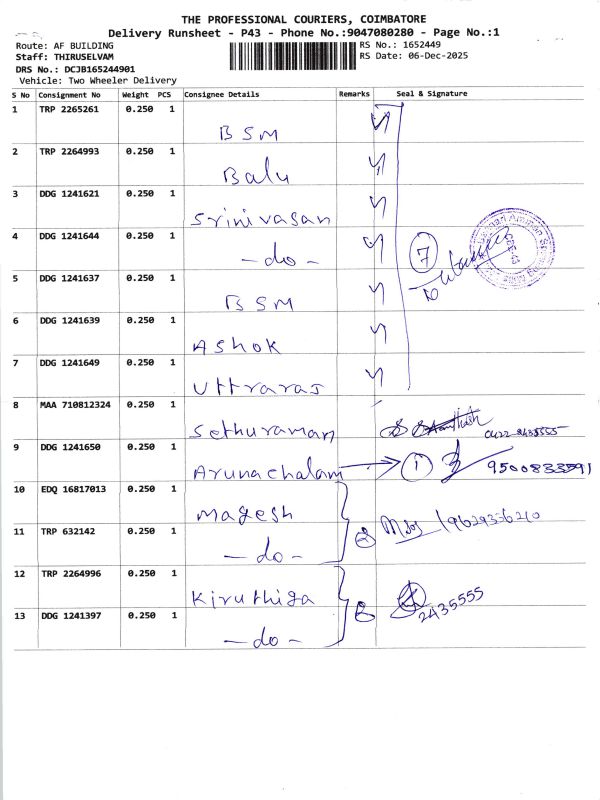 THE PROFESSIONAL COURIERS, COIMBATORE
Delivery Runsheet - P43 - Phone No.:9047080280 - Page No.:1
Route: AF BUILDING
RS No.: 1652449
Staff: THIRUSELVAM
RS Date: 06-Dec-2025
DRS No.: DCJB165244901
Vehicle: Two Wheeler Delivery
S No Consignment No Weight PCS Consignee Details Remarks Seal & Signature
1 TRP 2265261 0.250 1
BSM
2 TRP 2264993 0.250 1
Balu
3 DDG 1241621 0.250 1
Srinivasan
4 DDG 1241644 0.250 1
- do - 7
5 DDG 1241637 0.250 1
BSM
6 DDG 1241639 0.250 1
Ashok
7 DDG 1241649 0.250 1
Uttraras
8 MAA 710812324 0.250 1
Sethuraman 0422-2435555
9 DDG 1241650 0.250 1
Arunachalam 1 9500833591
10 EDQ 16817013 0.250 1
Magesh
11 TRP 632142 0.250 1
2 9629336210
- do -
12 TRP 2264996 0.250 1
Kiruthiga
13 DDG 1241397 0.250 1
2 2435555
- do -